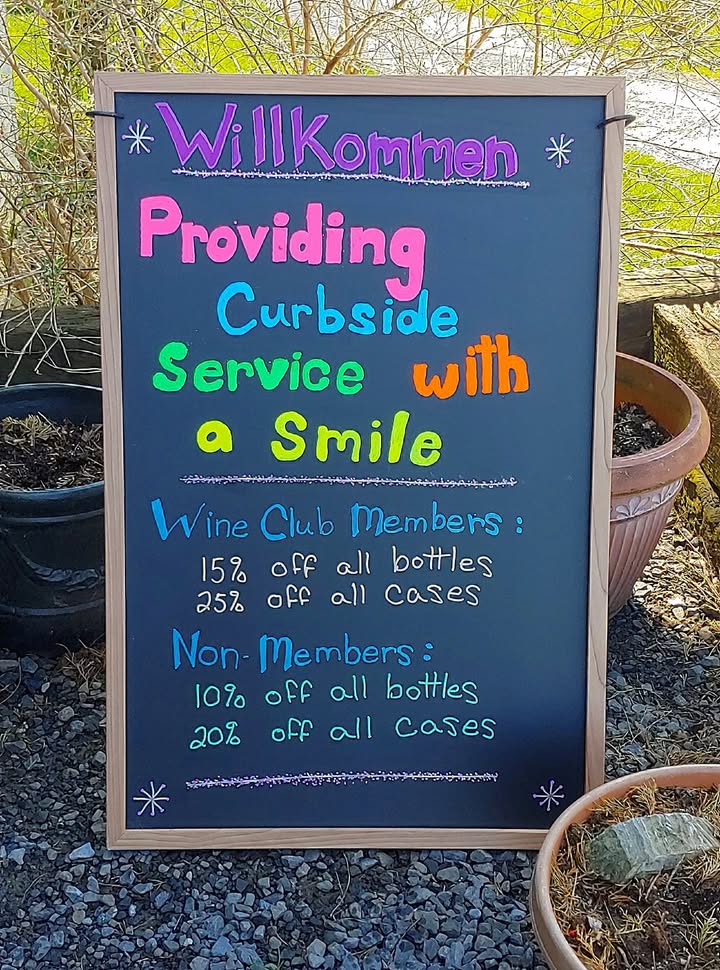 Willkommen
Providing
Curbside
Service with
a Smile
Wine Club Members:
15% off all bottles
25% off all cases
Non-Members:
10% off all bottles
20% off all cases